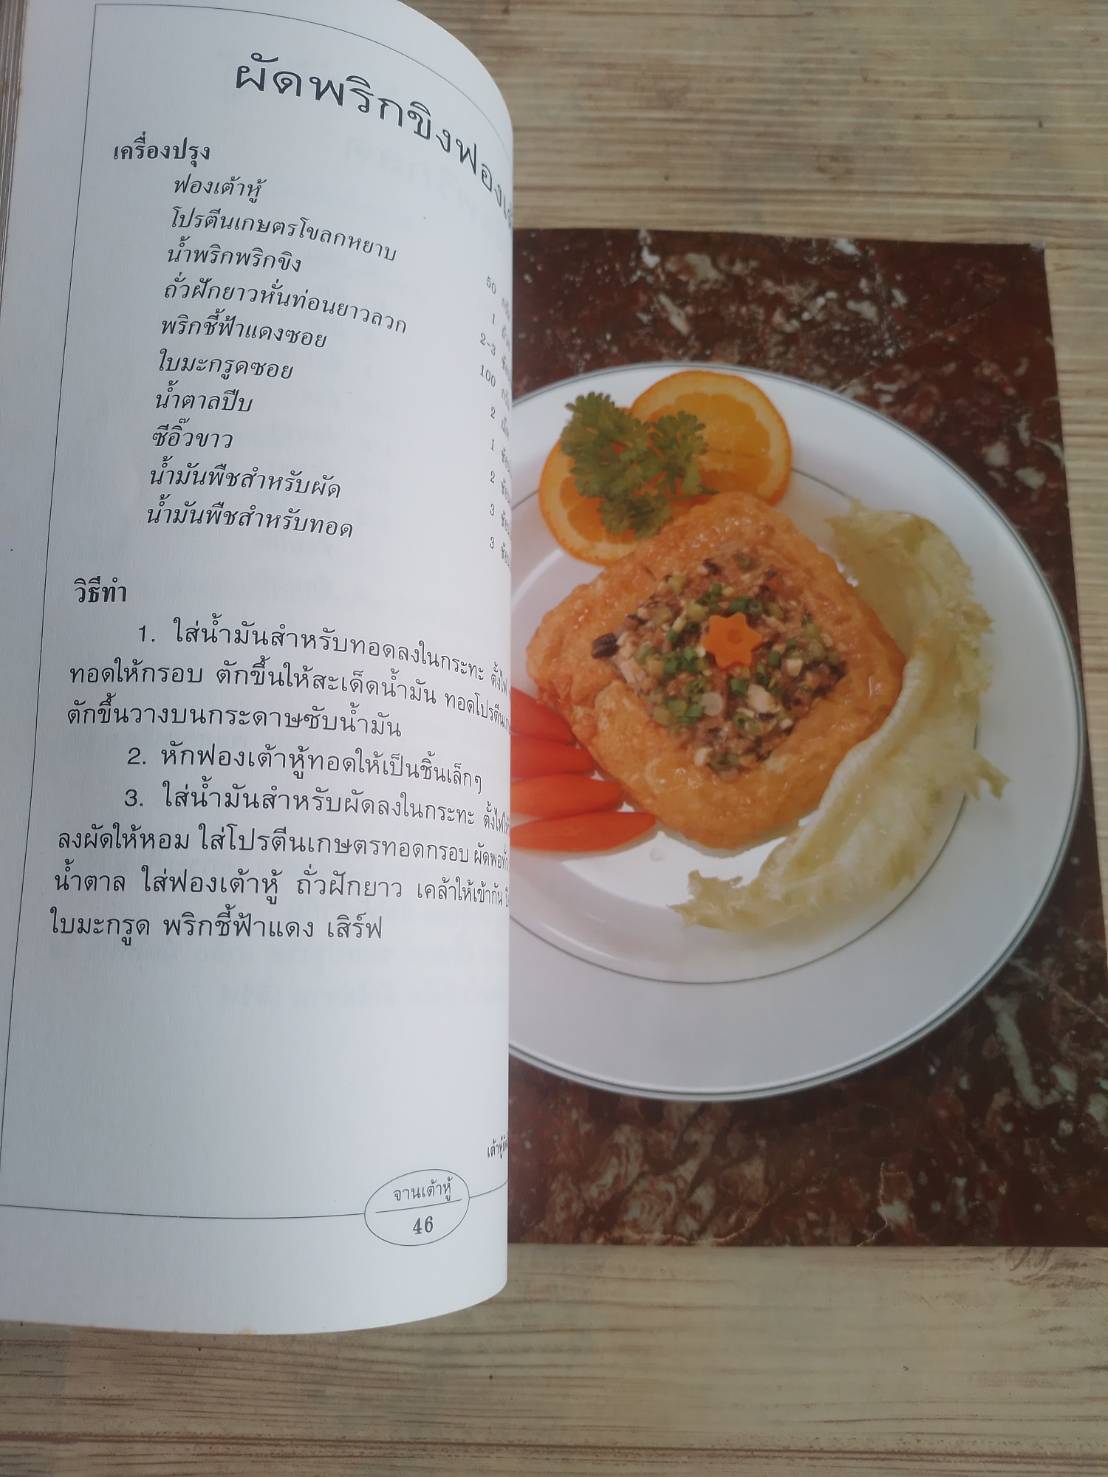 ผัดพริกขิงฟอง
เครื่องปรุง
ฟองเต้าหู้ 50
โปรตีนเกษตรโขลกหยาบ 1
น้ำพริกพริกขิง 2-3
ถั่วฝักยาวหั่นท่อนยาวลวก 100
พริกชี้ฟ้าแดงซอย 2
ใบมะกรูดซอย 1
น้ำตาลปีบ 2
ซีอิ๊วขาว 3
น้ำมันพืชสำหรับผัด 3
น้ำมันพืชสำหรับทอด
วิธีทำ
1. ใส่น้ำมันสำหรับทอดลงในกระทะ ตั้งไฟ
ทอดให้กรอบ ตักขึ้นให้สะเด็ดน้ำมัน ทอดโปรตีน
ตักขึ้นวางบนกระดาษซับน้ำมัน
2. หักฟองเต้าหู้ทอดให้เป็นชิ้นเล็กๆ
3. ใส่น้ำมันสำหรับผัดลงในกระทะ ตั้งไฟ
ลงผัดให้หอม ใส่โปรตีนเกษตรทอดกรอบ ผัดพอ
น้ำตาล ใส่ฟองเต้าหู้ ถั่วฝักยาว เคล้าให้เข้ากัน
ใบมะกรูด พริกชี้ฟ้าแดง เสิร์ฟ
เต้าหู้
จานเต้าหู้
46